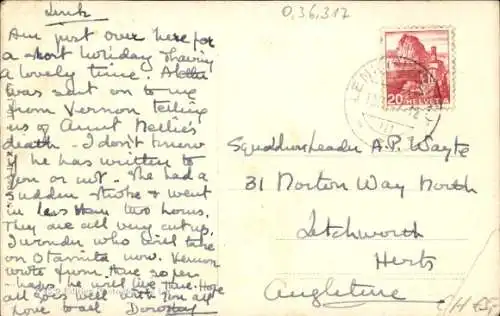 Lenk
0,36,317
Am just over here for
a short holiday & having
a lovely time. A letter
was sent on to me
from Vernon telling
us of Aunt Nellie's
death - I don't know
if he has written to
you or not. She had a
sudden stroke & went
in less than two hours.
They are all very cut up.
I wonder who will take
on now. Vernon
wrote from so per-
haps he will live there. Hope
all goes well with you all
Love to all Dorothy
20 HELVETIA
Squadron Leader A.P. Wayte
31 Norton Way North
Letchworth
Herts
Angleterre